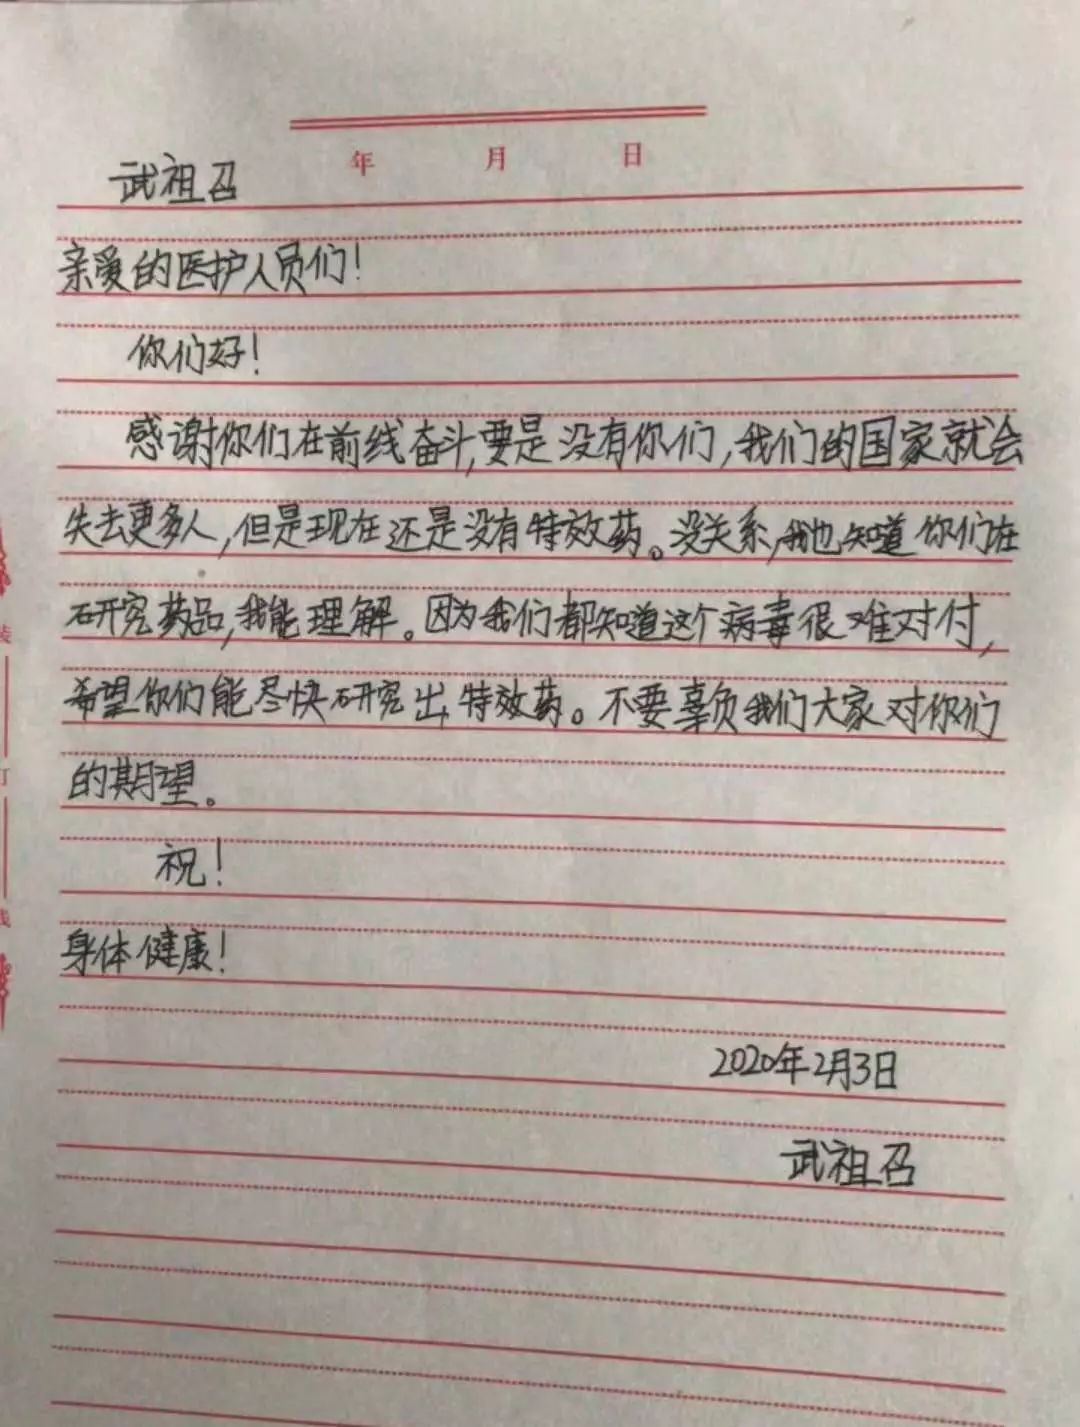 年 月 日
武祖召
亲爱的医护人员们！
你们好！
感谢你们在前线奋斗，要是没有你们，我们的国家就会
失去更多人，但是现在还是没有特效药。没关系，我也知道你们在
研究药品，我能理解。因为我们都知道这个病毒很难对付，
希望你们能尽快研究出特效药。不要辜负我们大家对你们
的期望。
祝！
身体健康！
2020年2月3日
武祖召
装
订
线